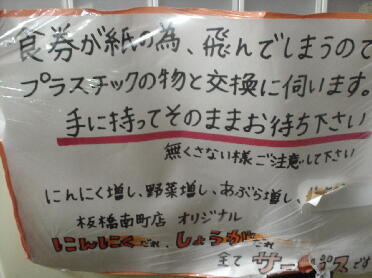 食券が紙の為、飛んでしまうので
プラスチックの物と交換に伺います。
手に持ってそのままお待ち下さい
無くさない様ご注意して下さい
にんにく増し、野菜増し、あぶら増し、
板橋南町店 オリジナル
にんにくだれ、しょうがだれ
全て サービスです